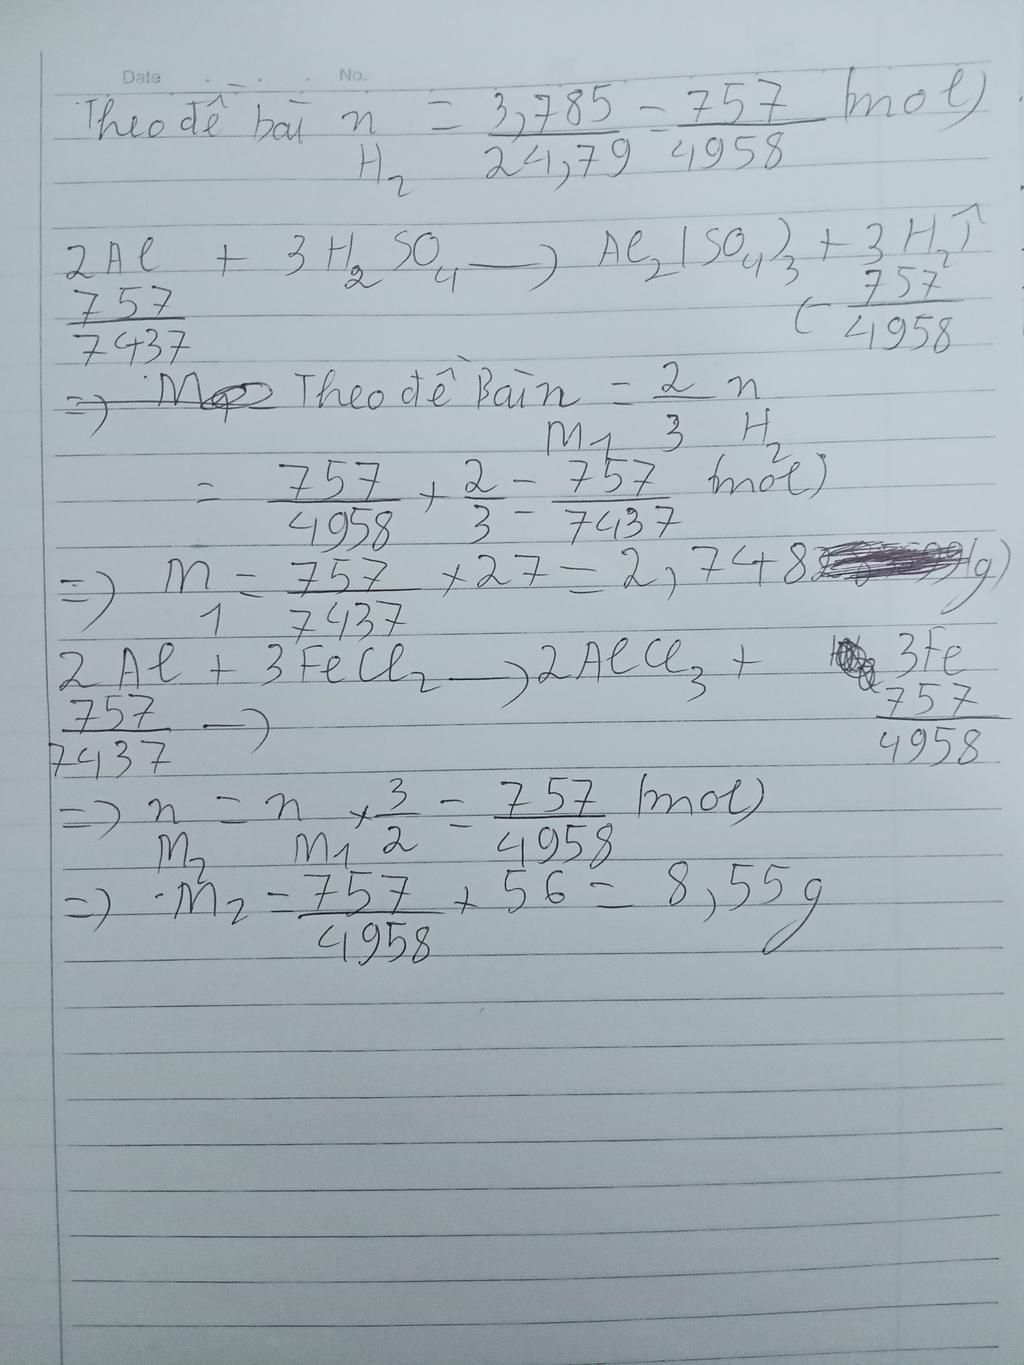 Date . . . No.
Theo đề bài n H₂ = 3,785/24,79 = 757/4958 (mol)
2Al + 3H₂SO₄ → Al₂(SO₄)₃ + 3H₂↑
757/7437 ← 757/4958
=> Theo đề Bài n M1 = 2/3 n H₂
= 757/4958 × 2/3 = 757/7437 (mol)
=> m 1 = 757/7437 × 27 = 2,748 (g)
2Al + 3FeCl₂ → 2AlCl₃ + 3Fe
757/7437 → 757/4958
=> n M₂ = n M1 × 3/2 = 757/4958 (mol)
=> M₂ = 757/4958 × 56 = 8,55g